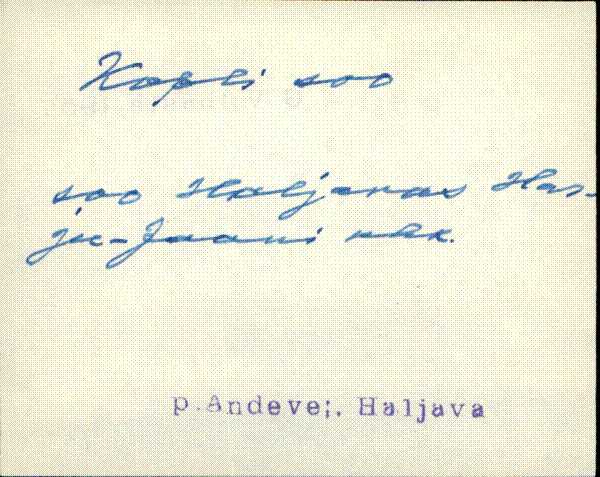 Kopli soo
soo Haljavas Har-
ju-Jaani khk.
p.Andevei, Haljava